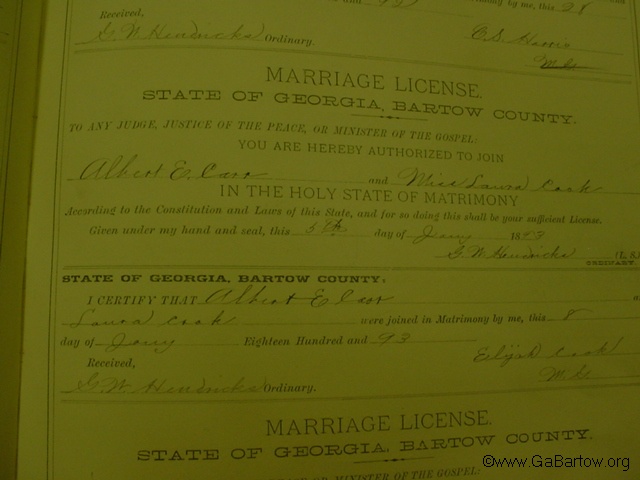 and 93 mony by me, this 28
Received,
G. W. Hendricks Ordinary.
C. S. Harris
MARRIAGE LICENSE.
STATE OF GEORGIA, BARTOW COUNTY.
TO ANY JUDGE, JUSTICE OF THE PEACE, OR MINISTER OF THE GOSPEL:
YOU ARE HEREBY AUTHORIZED TO JOIN
Albert E. Carr and Miss Laura Cook
IN THE HOLY STATE OF MATRIMONY
According to the Constitution and Laws of this State, and for so doing this shall be your sufficient License.
Given under my hand and seal, this 5th day of Jany 1893
G. W. Hendricks (L. S.)
ORDINARY.
STATE OF GEORGIA, BARTOW COUNTY:
I CERTIFY THAT Albert E Carr
Laura Cook were joined in Matrimony by me, this 8
day of Jany Eighteen Hundred and 93
Received, Elijah Cook
G. W. Hendricks Ordinary.
MARRIAGE LICENSE.
STATE OF GEORGIA, BARTOW COUNTY.
PEACE, OR MINISTER OF THE GOSPEL:
©www.GaBartow.org